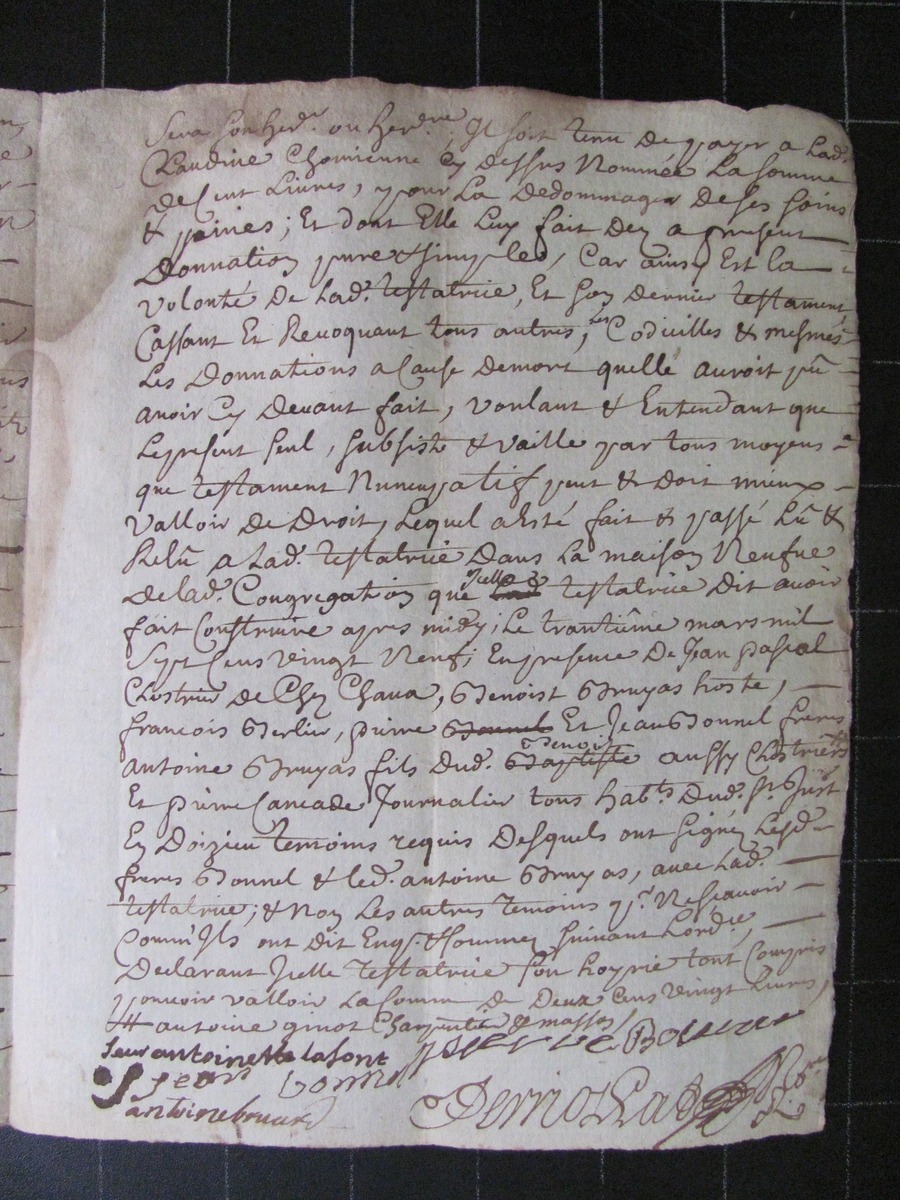 Sera son herd.r ou herd.re, Il soit tenu de payer a Lad.
Claudine Chomienne cy dessus Nommée La somme
de Cent Livres, pour La dedommager de ses soins
& peines; Et dont Elle Luy fait dez a present
Donnation pure & simple, Car ainsy Est la
volonté de Lad. testatrice, Et son dernier testament,
Cassant Et Revoquant tous autres, Codicilles & mesmes
Les Donnations a Cause demort quelle auroit pû
avoir Cy devant fait, voulant & Entendant que
Lepresent seul, subsiste & vaille par tous moyens
que testament Nuncupatif peut & doit mieux
valloir de Droit, Lequel a Esté fait & passé Lû &
Relû a Lad. testatrice dans La maison Neufve
delad. Congregation que Icelle testatrice dit avoir
fait Construire apres midy, Le trantiême mars mil
Sept Cens vingt Neuf, En presence de Jean pascal
Clostrier de Chez Chava, Benoist Bruyas hoste,
francois Berlier, pierre Bonnel Et Jean Bonnel freres
antoine Bruyas fils dud. Benoist Baptiste aussy Clostriers
Et pierre Cancade Journalier tous hab.ts dud. St. Just
En Doizieu temoins requis desquels ont signéz Lesd.
freres Bonnel & led. antoine Bruyas, avec Lad.
testatrice; & Non Les autres temoins p.r Nesçavoir
Comm'Ils ont dit Enqs. & sommez suivant Lord.ce,
Declarant Icelle testatrice son hoyrie tout Compris
pouvoir valloir La somme de Deux Cens vingt Livres,
antoine ginot Charpentier de massos
seur antoinette lafont pierre Bonnel
Jean bonnel
antoine bruias